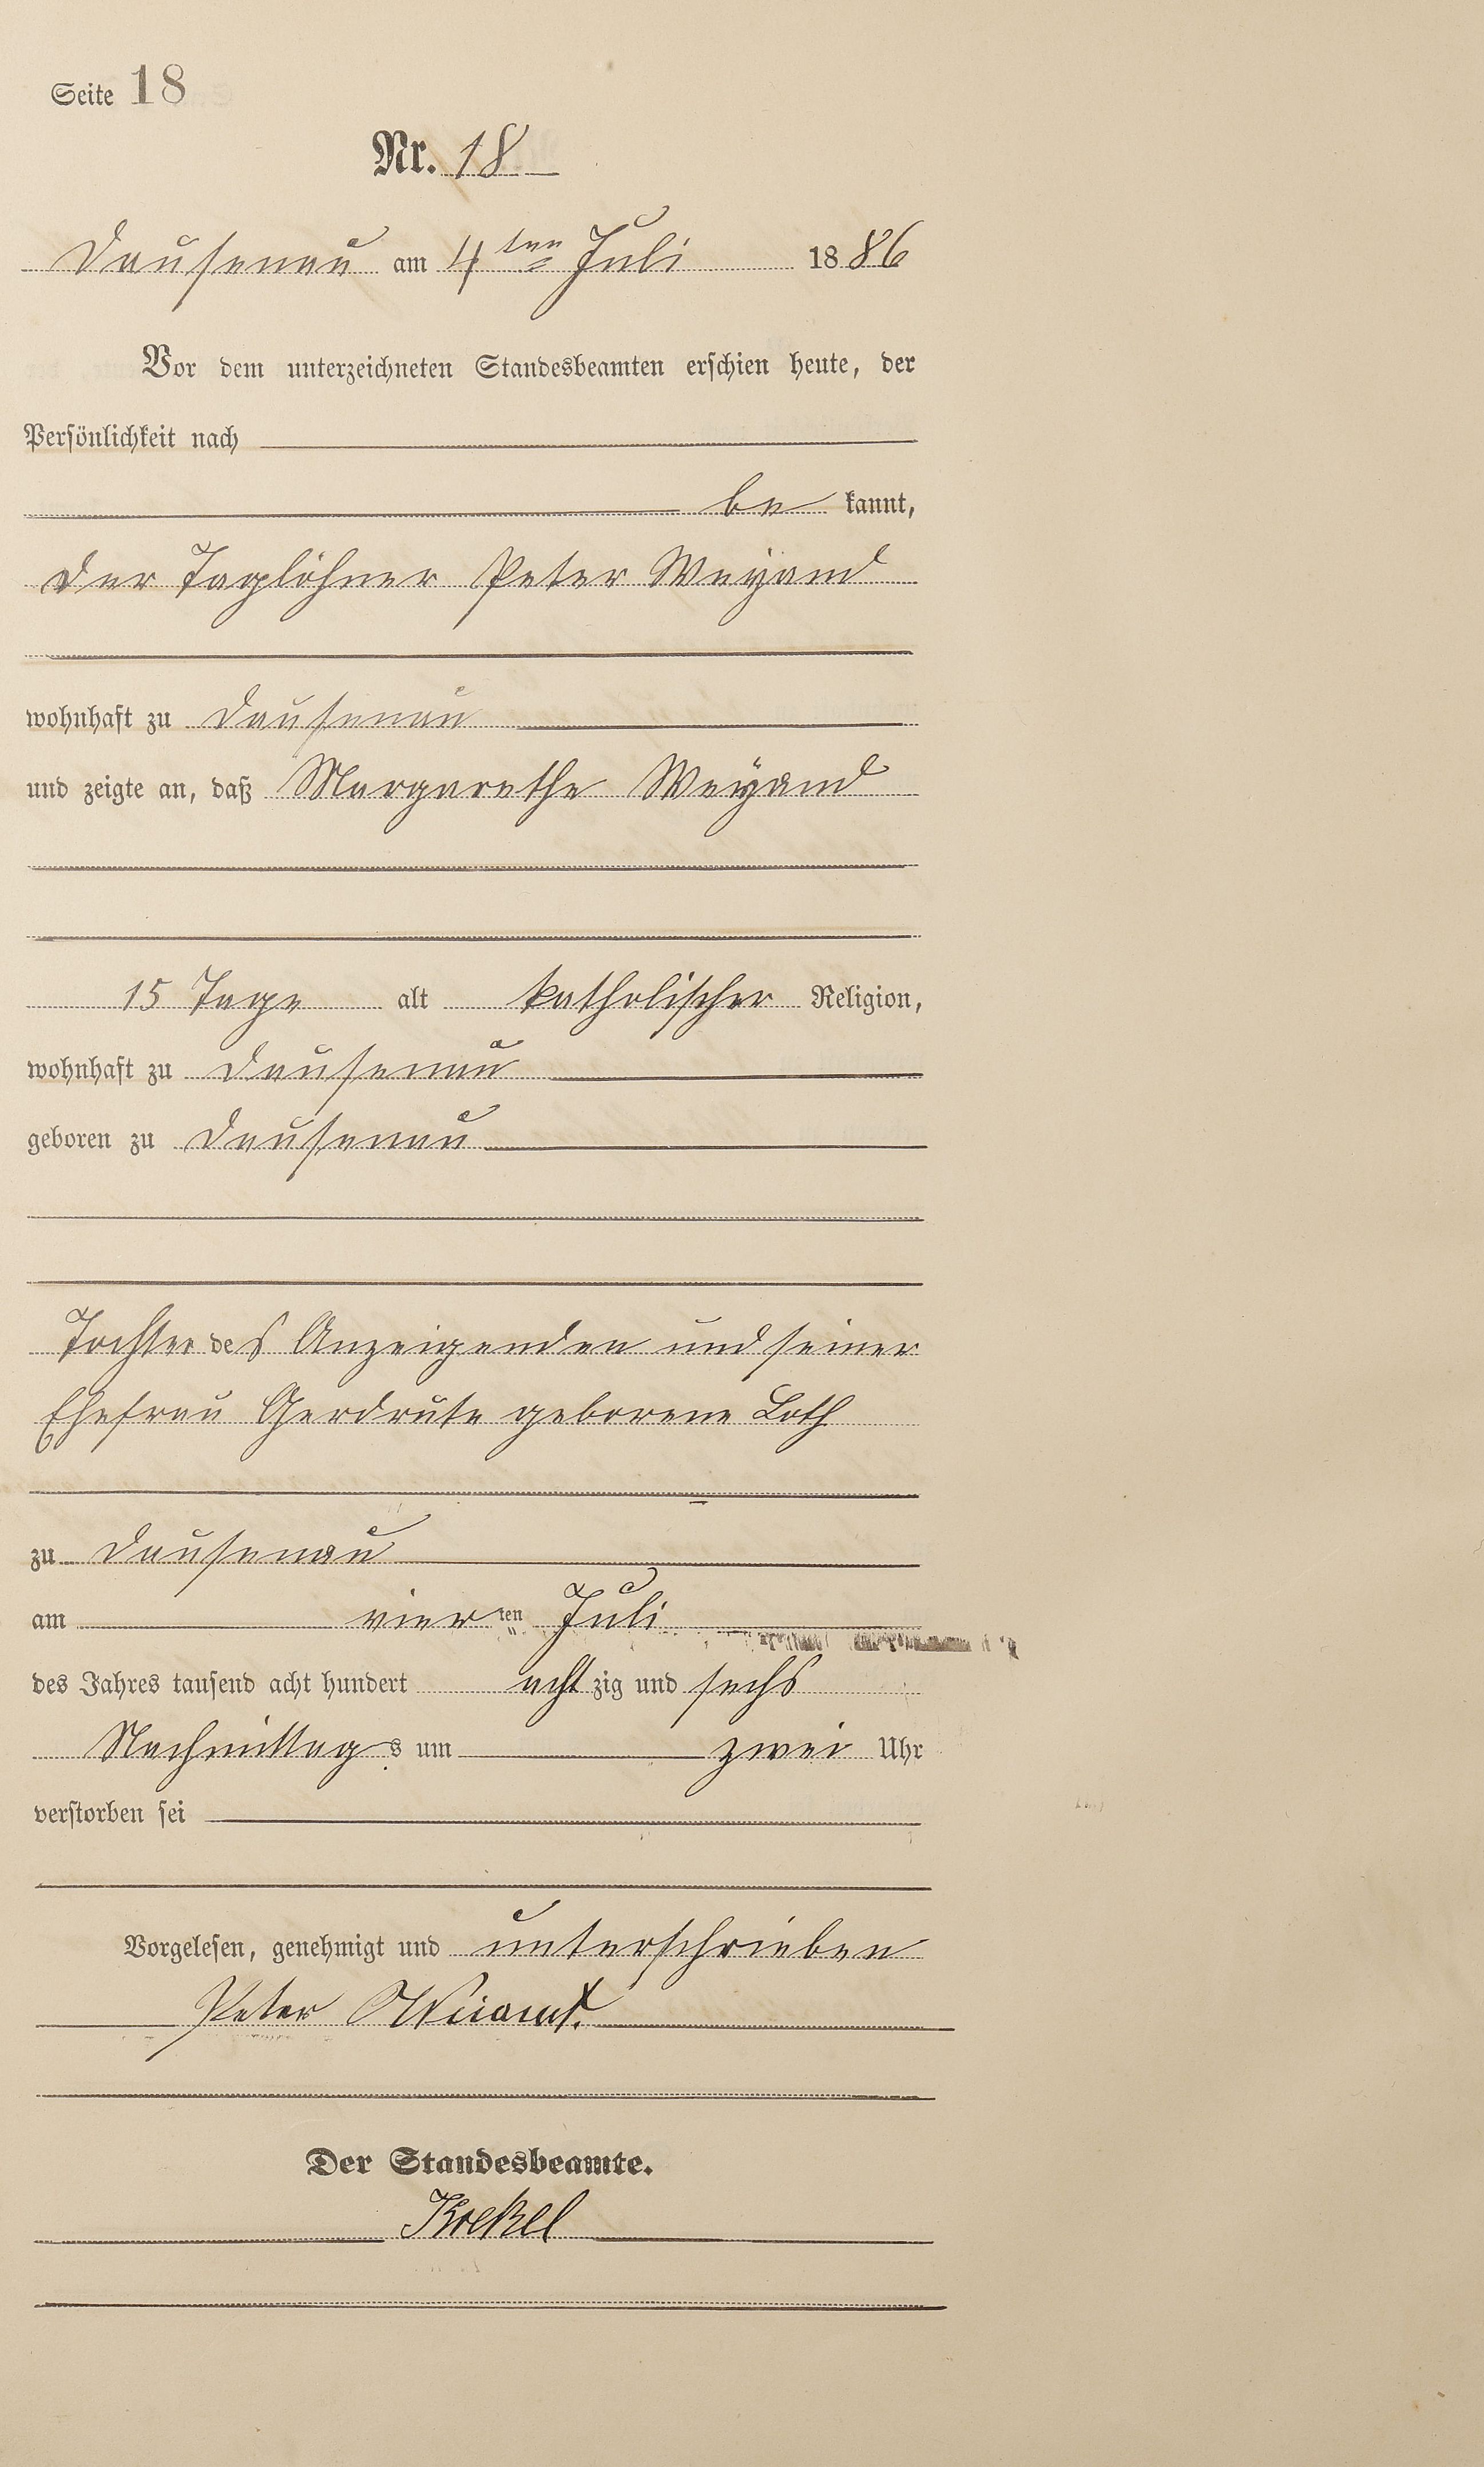 Seite 18
Nr. 18
Dausenau am 4ten Juli 1886
Vor dem unterzeichneten Standesbeamten erschien heute, der
Persönlichkeit nach
be kannt,
der Taglöhner Peter Weyand
wohnhaft zu Dausenau
und zeigte an, daß Margarethe Weyand
15 Tage alt katholischer Religion,
wohnhaft zu Dausenau
geboren zu Dausenau
Tochter des Anzeigenden und seiner
Ehefrau Gerdrute geborene Loth
zu Dausenau
am vier ten Juli
des Jahres tausend acht hundert acht zig und sechs
Nachmittag s um zwei Uhr
verstorben sei
Vorgelesen, genehmigt und unterschrieben
Peter
Der Standesbeamte.